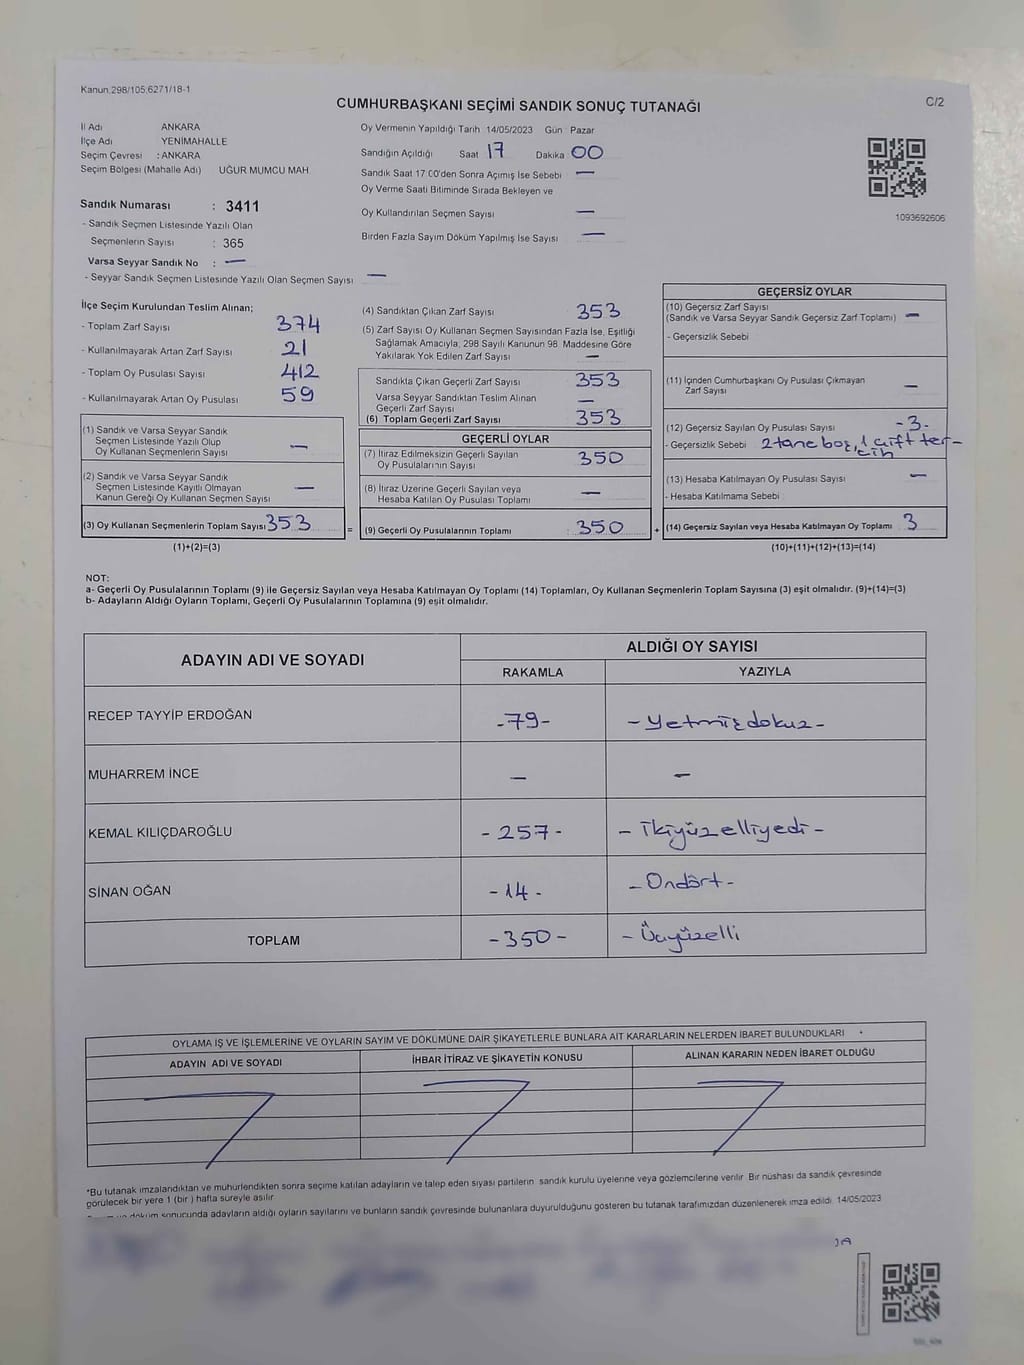 Kanun.298/105;6271/18-1
CUMHURBAŞKANI SEÇİMİ SANDIK SONUÇ TUTANAĞI
C/2
İl Adı ANKARA
İlçe Adı YENİMAHALLE
Seçim Çevresi : ANKARA
Seçim Bölgesi (Mahalle Adı) UĞUR MUMCU MAH.
Sandık Numarası : 3411
- Sandık Seçmen Listesinde Yazılı Olan
Seçmenlerin Sayısı : 365
Varsa Seyyar Sandık No : —
- Seyyar Sandık Seçmen Listesinde Yazılı Olan Seçmen Sayısı —
Oy Vermenin Yapıldığı Tarih 14/05/2023 Gün Pazar
Sandığın Açıldığı Saat 17 Dakika 00
Sandık Saat 17:00'den Sonra Açımış İse Sebebi —
Oy Verme Saati Bitiminde Sırada Bekleyen ve
Oy Kullandırılan Seçmen Sayısı —
Birden Fazla Sayım Döküm Yapılmış İse Sayısı —
1093692606
İlçe Seçim Kurulundan Teslim Alınan;
- Toplam Zarf Sayısı 374
- Kullanılmayarak Artan Zarf Sayısı 21
- Toplam Oy Pusulası Sayısı 412
- Kullanılmayarak Artan Oy Pusulası 59
(1) Sandık ve Varsa Seyyar Sandık
Seçmen Listesinde Yazılı Olup
Oy Kullanan Seçmenlerin Sayısı —
(2) Sandık ve Varsa Seyyar Sandık
Seçmen Listesinde Kayıtlı Olmayan
Kanun Gereği Oy Kullanan Seçmen Sayısı —
(3) Oy Kullanan Seçmenlerin Toplam Sayısı 353
(1)+(2)=(3)
(4) Sandıktan Çıkan Zarf Sayısı 353
(5) Zarf Sayısı Oy Kullanan Seçmen Sayısından Fazla İse, Eşitliği
Sağlamak Amacıyla, 298 Sayılı Kanunun 98. Maddesine Göre
Yakılarak Yok Edilen Zarf Sayısı —
Sandıkta Çıkan Geçerli Zarf Sayısı 353
Varsa Seyyar Sandıktan Teslim Alınan
Geçerli Zarf Sayısı —
(6) Toplam Geçerli Zarf Sayısı 353
GEÇERLİ OYLAR
(7) İtiraz Edilmeksizin Geçerli Sayılan
Oy Pusulalarının Sayısı 350
(8) İtiraz Üzerine Geçerli Sayılan veya
Hesaba Katılan Oy Pusulası Toplamı —
= (9) Geçerli Oy Pusulalarının Toplamı : 350 +
GEÇERSİZ OYLAR
(10) Geçersiz Zarf Sayısı
(Sandık ve Varsa Seyyar Sandık Geçersiz Zarf Toplamı) —
- Geçersizlik Sebebi
(11) İçinden Cumhurbaşkanı Oy Pusulası Çıkmayan
Zarf Sayısı —
(12) Geçersiz Sayılan Oy Pusulası Sayısı -3-
- Geçersizlik Sebebi 2 tane boş, 1 çift ter-
cih
(13) Hesaba Katılmayan Oy Pusulası Sayısı —
- Hesaba Katılmama Sebebi
(14) Geçersiz Sayılan veya Hesaba Katılmayan Oy Toplamı 3
(10)+(11)+(12)+(13)=(14)
NOT:
a- Geçerli Oy Pusulalarının Toplamı (9) ile Geçersiz Sayılan veya Hesaba Katılmayan Oy Toplamı (14) Toplamları, Oy Kullanan Seçmenlerin Toplam Sayısına (3) eşit olmalıdır. (9)+(14)=(3)
b- Adayların Aldığı Oyların Toplamı, Geçerli Oy Pusulalarının Toplamına (9) eşit olmalıdır.
ADAYIN ADI VE SOYADI
ALDIĞI OY SAYISI
RAKAMLA YAZIYLA
RECEP TAYYİP ERDOĞAN -79- -Yetmişdokuz-
MUHARREM İNCE — —
KEMAL KILIÇDAROĞLU -257- -İkiyüzelliyedi-
SİNAN OĞAN -14- -Ondört-
TOPLAM -350- -Üçyüzelli
OYLAMA İŞ VE İŞLEMLERİNE VE OYLARIN SAYIM VE DÖKÜMÜNE DAİR ŞİKAYETLERLE BUNLARA AİT KARARLARIN NELERDEN İBARET BULUNDUKLARI *
ADAYIN ADI VE SOYADI İHBAR İTİRAZ VE ŞİKAYETİN KONUSU ALINAN KARARIN NEDEN İBARET OLDUĞU
*Bu tutanak imzalandıktan ve mühürlendikten sonra seçime katılan adayların ve talep eden siyasi partilerin sandık kurulu üyelerine veya gözlemcilerine verilir. Bir nüshası da sandık çevresinde
görülecek bir yere 1 (bir ) hafta süreyle asılır.
döküm sonucunda adayların aldığı oyların sayılarını ve bunların sandık çevresinde bulunanlara duyurulduğunu gösteren bu tutanak tarafımızdan düzenlenerek imza edildi. 14/05/2023